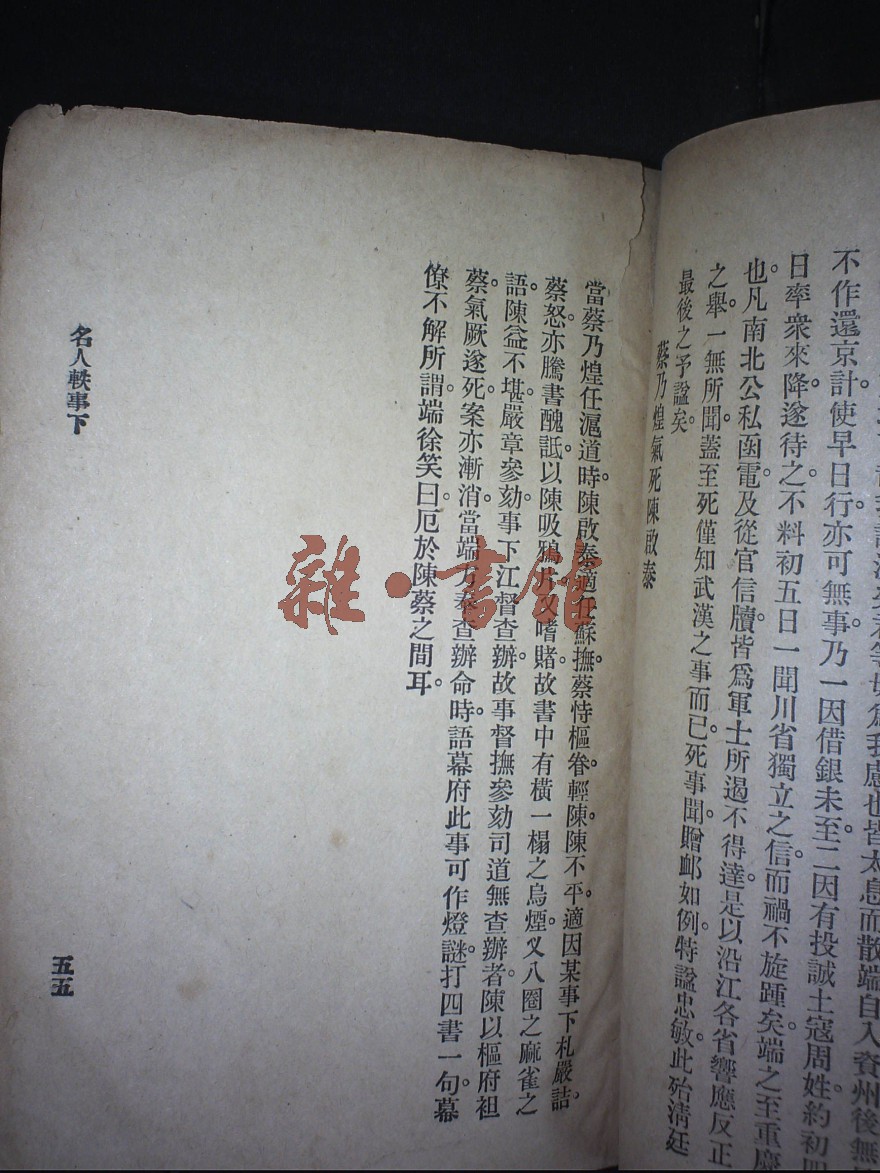 皆太息而散端自入資州後無
不作還京計使早日行。亦可無事。乃一因借銀未至。二因有投誠土寇周姓。約初四
日率衆來降。遂待之。不料初五日一聞川省獨立之信。而禍不旋踵矣。端之至重慶
也。凡南北公私函電。及從官信牘。皆爲軍士所遏。不得達。是以沿江各省響應反正
之舉。一無所聞。蓋至死僅知武漢之事而已。死事聞。贈卹如例。特諡忠敏。此殆淸廷
最後之予諡矣。
蔡乃煌氣死陳啟泰
當蔡乃煌任滬道時。陳啟泰適任蘇撫。蔡恃樞眷。輕陳。陳不平。適因某事下札嚴詰。
蔡怒。亦騰書醜詆。以陳吸鴉片。又嗜賭。故書中有橫一榻之烏煙。叉八圈之麻雀之
語。陳益不堪。嚴章參劾。事下江督查辦。故事督撫參劾司道。無查辦者。陳以樞府袒
蔡。氣厥遂死。案亦漸消。當端方奉查辦命時。語幕府此事可作燈謎。打四書一句。幕
僚不解所謂。端徐笑曰。厄於陳蔡之間耳。
名人軼事下
五五
雜·書館